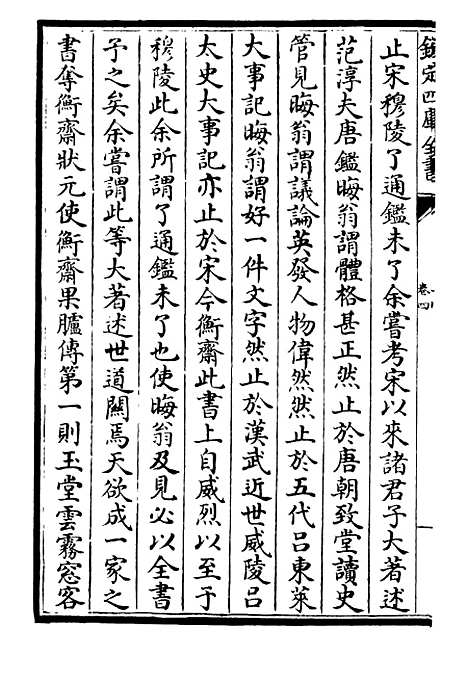 欽定四庫全書
卷四
止宋穆陵了通鑑未了余嘗考宋以來諸君子大著述
范淳夫唐鑑晦翁謂體格甚正然止於唐朝致堂讀史
管見晦翁謂議論英發人物偉然然止於五代吕東萊
大事記晦翁謂好一件文字然止於漢武近世威陵吕
太史大事記亦止於宋今衡齋此書上自威烈以至于
穆陵此余所謂了通鑑未了也使晦翁及見必以全書
予之矣余嘗謂此等大著述世道關焉天欲成一家之
書奪衡齋狀元使衡齋果臚傳第一則玉堂雲霧窓客